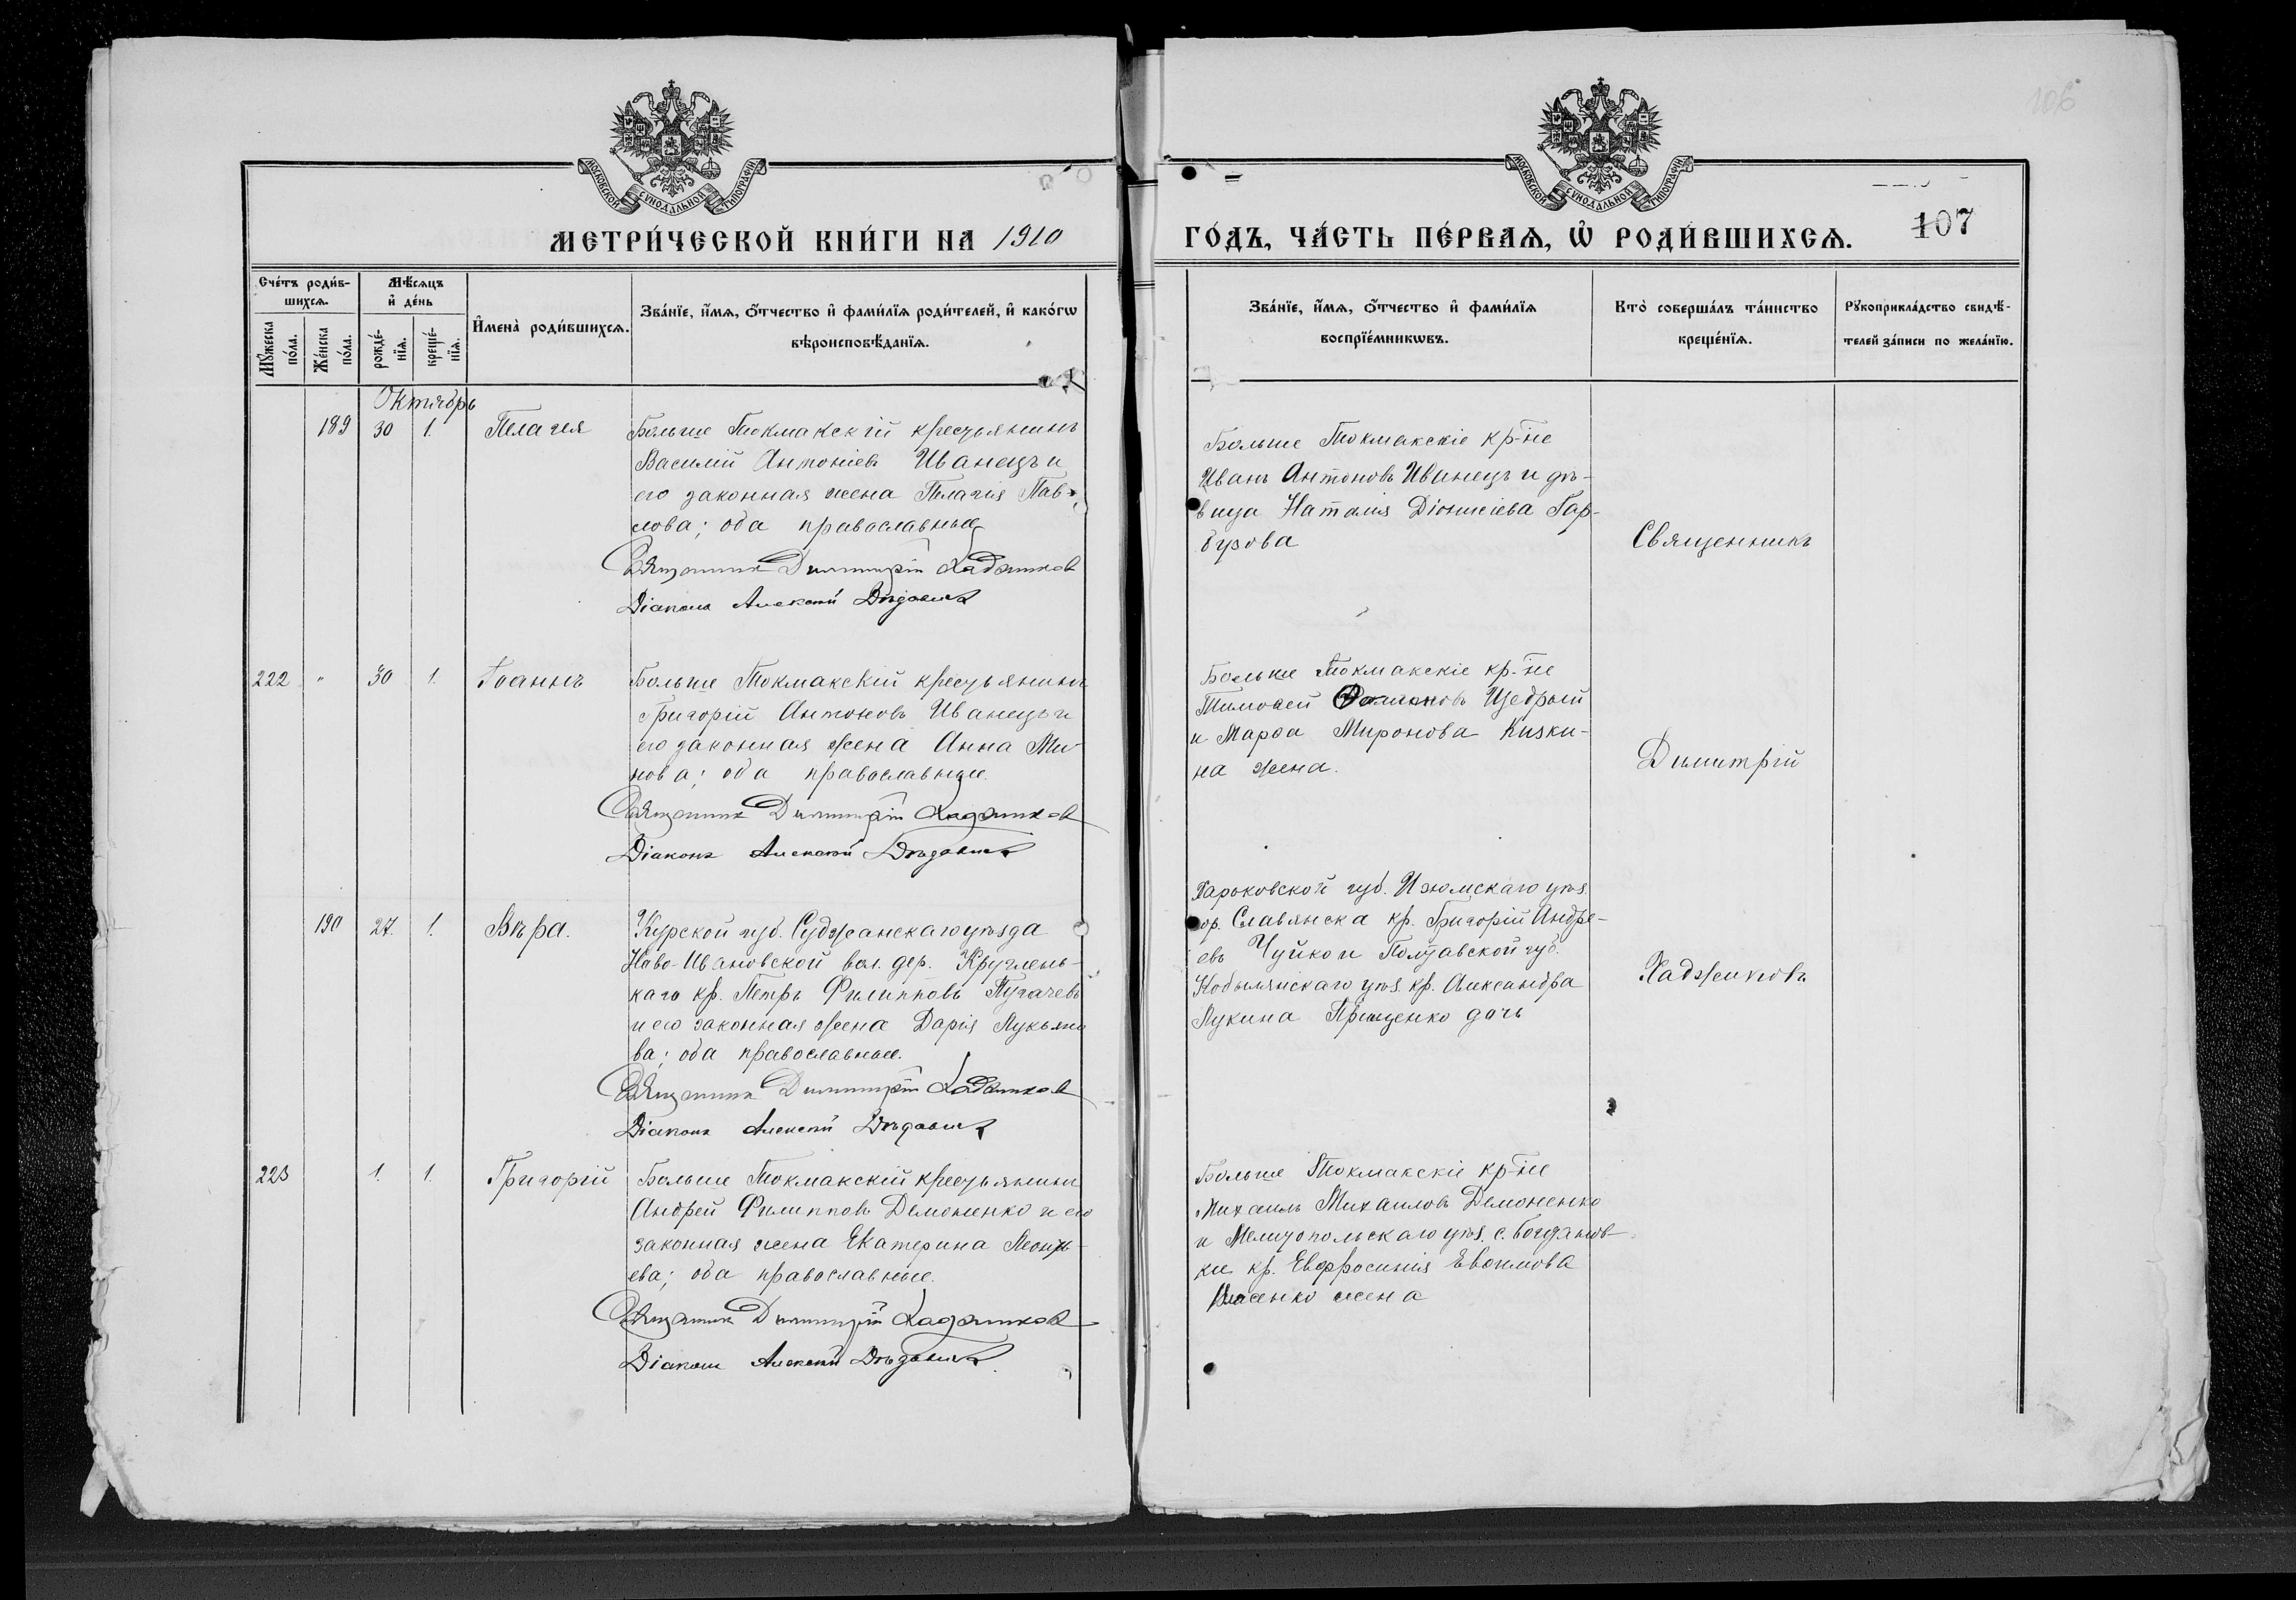 106
МОСКОВСКОЙ СѴНОДАЛЬНОЙ ТИПОГРАФІИ
МОСКОВСКОЙ СѴНОДАЛЬНОЙ ТИПОГРАФІИ
МЕТРИ́ЧЕСКОЙ КНИ́ГИ НА 1910
ГО́ДЪ, ЧА́СТЬ ПЕ́РВАѦ, Ѡ҆ РОДИ́ВШИХСѦ.
107
Сче́тъ роди́в-
шихсѧ.
Мꙋ́жеска
по́ла.
Же́нска
по́ла.
Мѣ́сѧцъ
и҆ де́нь
рожде́-
нїѧ.
креще́-
нїѧ.
И҆мена̀ роди́вшихсѧ.
Зва́нїе, и҆́мѧ, ѻ҆́тчество и҆ фами́лїѧ роди́телей, и҆ како́гѡ
вѣроисповѣ́данїѧ.
Зва́нїе, и҆́мѧ, ѻ҆́тчество и҆ фами́лїѧ
воспрїе́мникѡвъ.
Кто̀ соверша́лъ та́инство
креще́нїѧ.
Рꙋкоприкла́дство свидѣ́-
телей за́писи по жела́нїю.
Октябрь
189 30 1. Пелагея
Больше Токмакскій крестьянинъ
Василій Антоніевъ Иванецъ и
его законная жена Пелагія Пав-
лова; оба православные
Священник Димитрій Хаджинов
Діаконъ Алексѣй
Больше Токмакскіе кр-не
Иванъ Антоновъ Иванецъ и дѣ-
вица Наталія Діонисіева Гар-
бузова
Священникъ
222 " 30 1. Іоаннъ
Больше Токмакскій крестьянинъ
Григорій Антоновъ Иванецъ и
его законная жена Анна Ми-
нова; оба православные.
Священник Димитрій Хаджинов
Діаконъ Алексѣй
Больше Токмакскіе кр-не
Тимоѳей Щедрый
и Марѳа Миронова Кизки-
на жена.
Димитрій
190 27. 1. Вѣра.
Курской губ. Суджанскаго уѣзда
Ново-Ивановской вол. дер. Круглень-
каго кр. Петръ Филипповъ Пугачевъ
и его законная жена Дарія Лукьяно
ва; оба православные.
Священник Димитрій Хаджинов
Діаконъ Алексѣй
Харьковской губ. Изюмскаго уѣз.
гор. Славянска кр. Григорій Андре-
евъ Чуйко и Полтавской губ.
Кобылянскаго уѣз. кр. Александра
Лукина Прищенко дочь
Хаджиновъ
223 1. 1. Григорій
Больше Токмакскій крестьянинъ
Андрей Филипповъ Демоненко и его
законная жена Екатерина Леонть-
ева; оба православные.
Священник Димитрій Хаджинов
Діаконъ Алексѣй
Больше Токмакскіе кр-не
Михаилъ Михаиловъ Демоненко
и Мелитопольскаго уѣз. с. Богданов-
ки кр. Евфросинія Евѳимова
Власенко жена